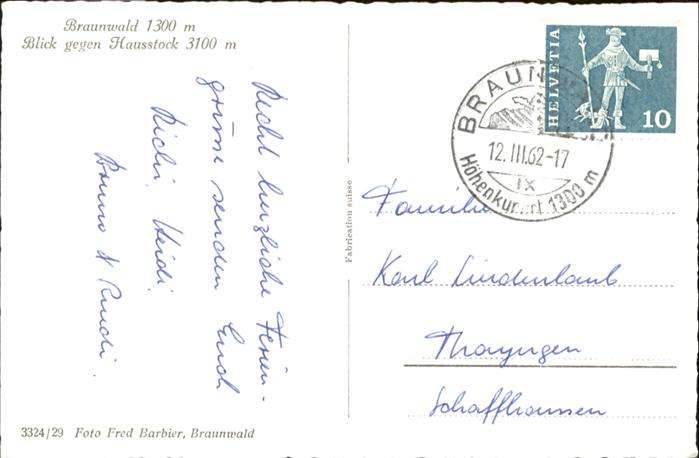 Braunwald 1300 m
Blick gegen Hausstock 3100 m
Recht herzliche Ferien-
grüsse senden Euch
Richi, Heidi,
Bruno & Ruedi.
3324/29 Foto Fred Barbier, Braunwald
Fabrication suisse
HELVETIA
10
BRAUNWALD
12.III.62-17
IX
Höhenkurort 1300 m
Familie
Karl Lindenlaub
Thayngen
Schaffhausen